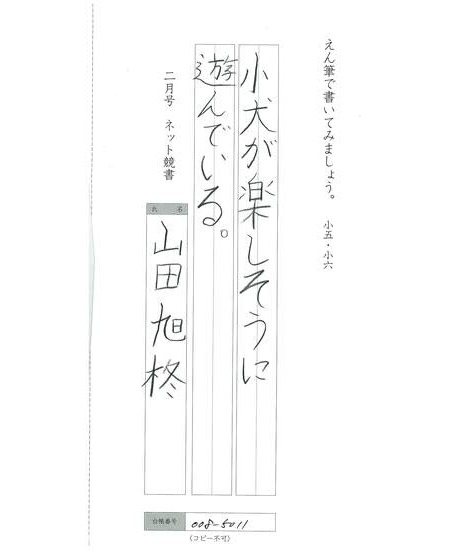 えん筆で書いてみましょう。 小五・小六
小犬が楽しそうに
遊んでいる。
二月号 ネット競書
氏名
山田旭柊
台帳番号 008-5011
(コピー不可)